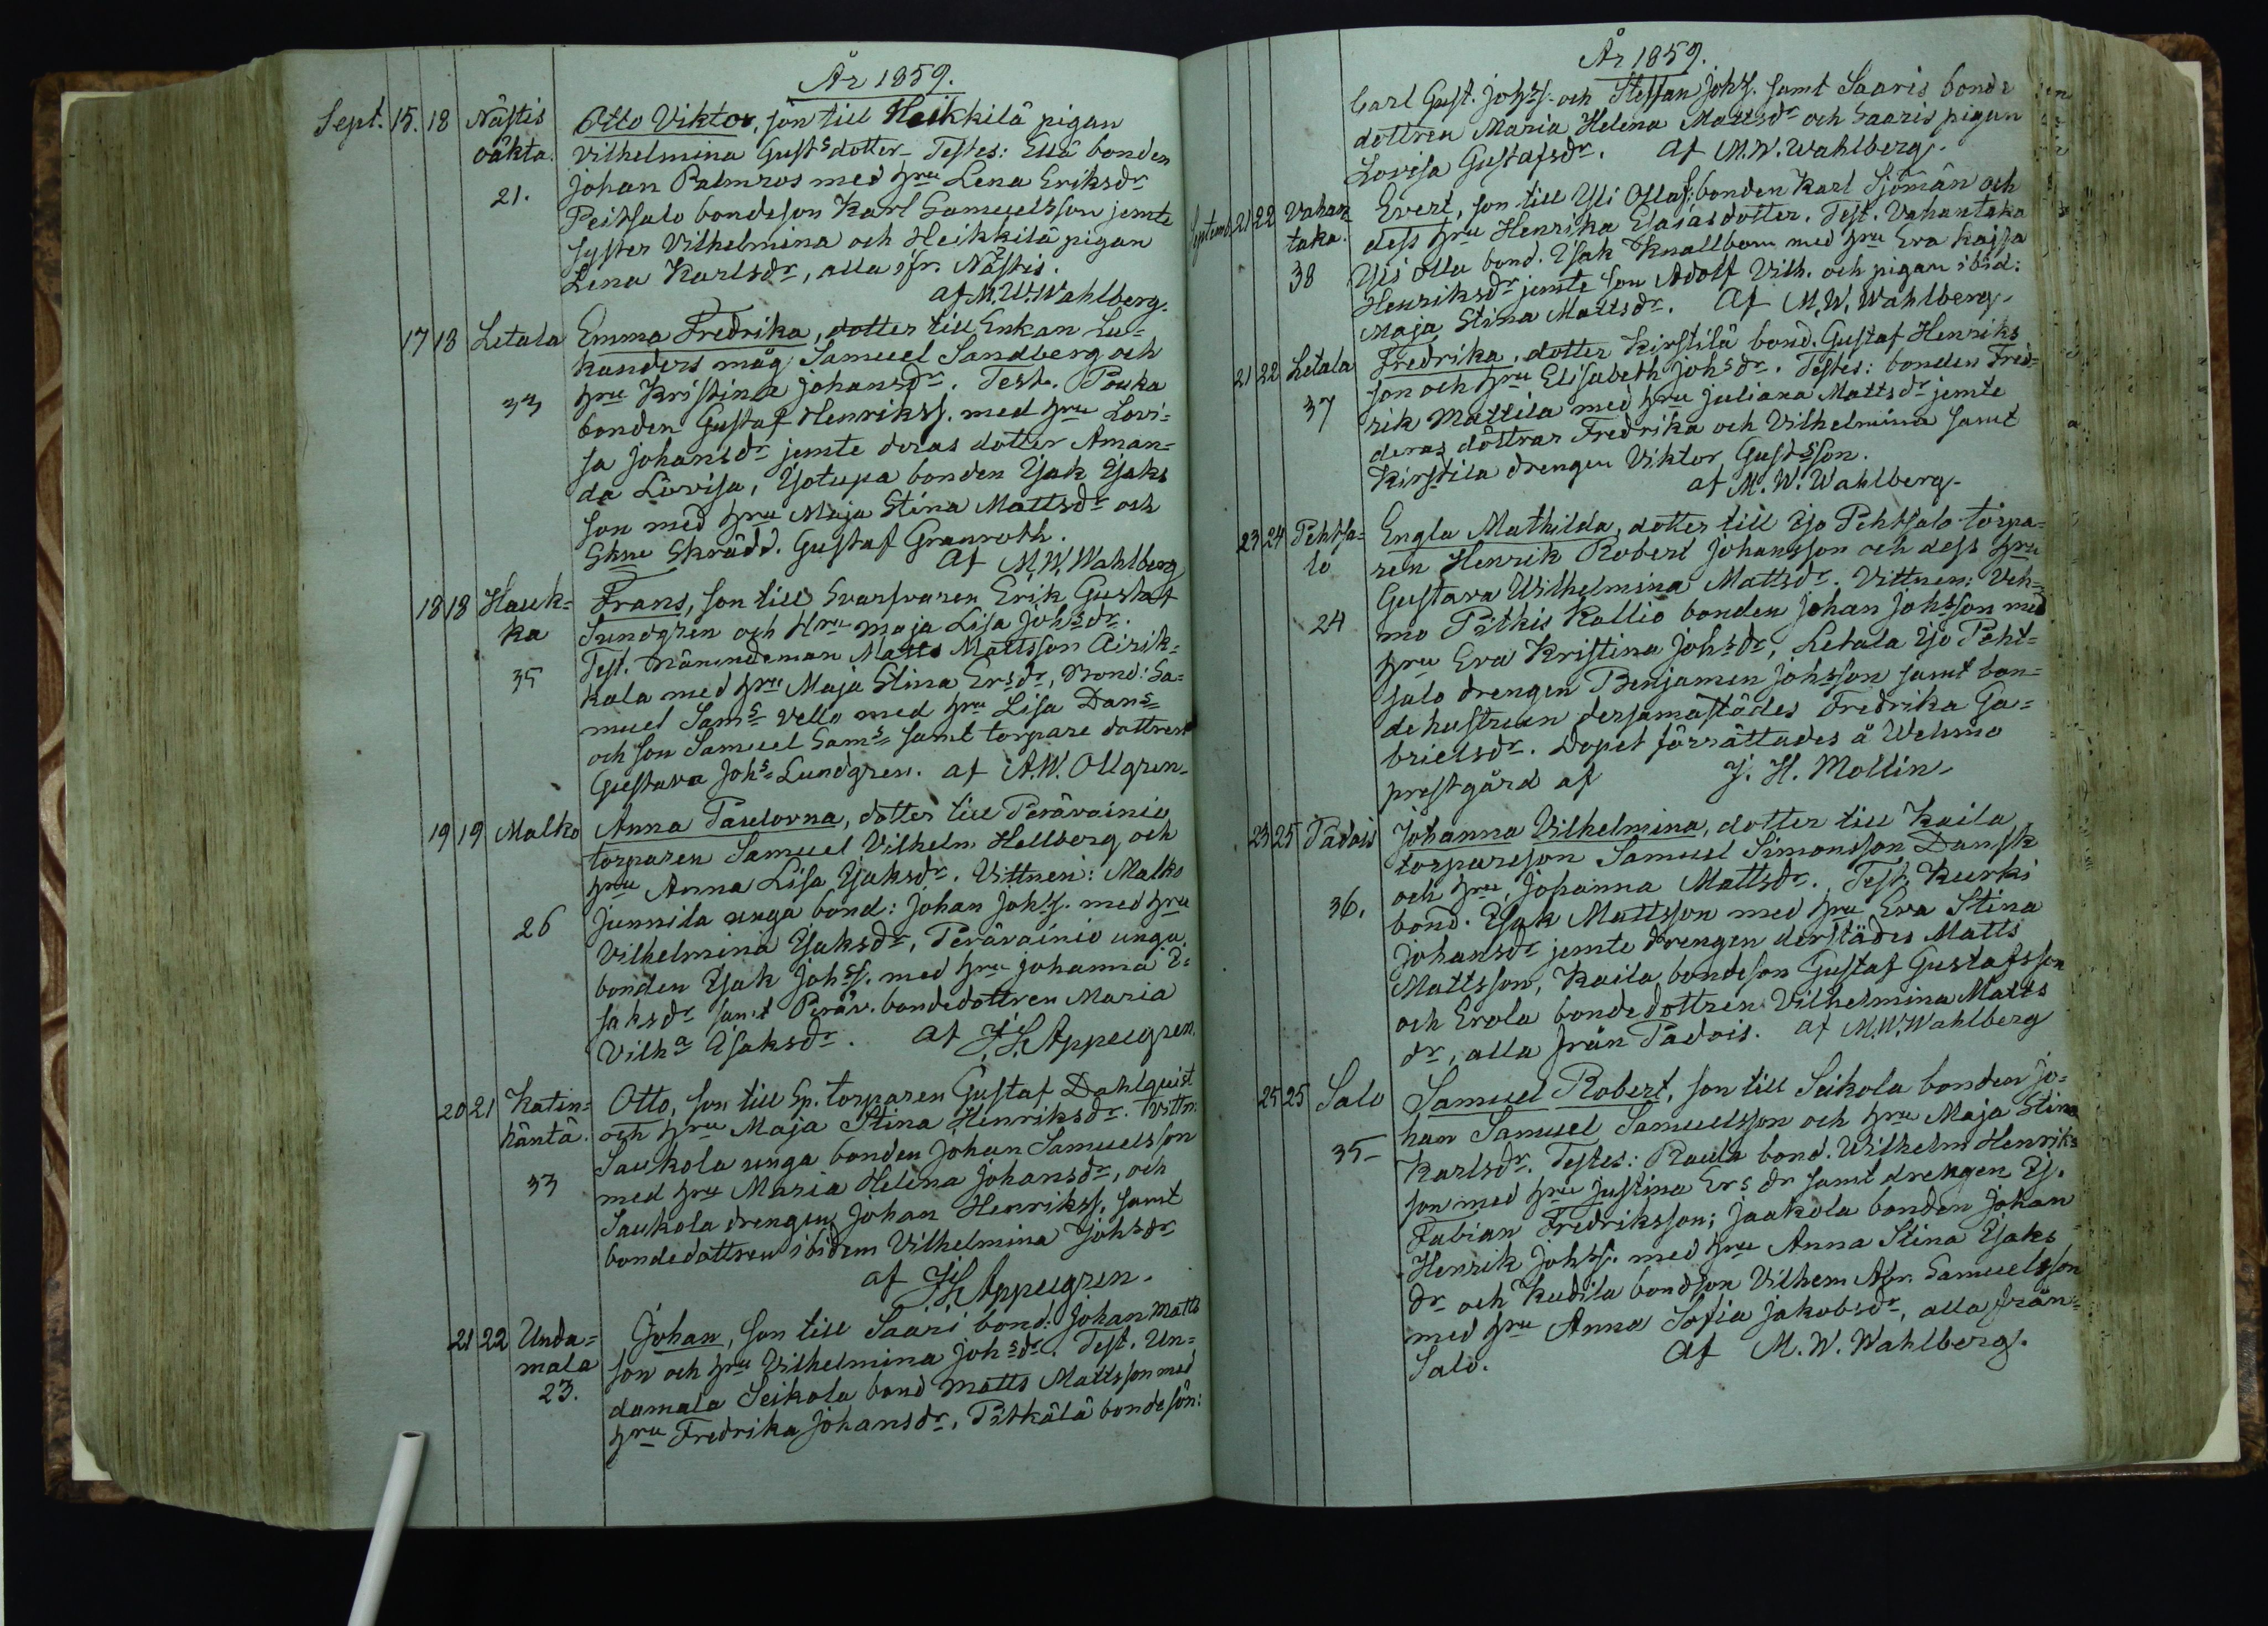 År 1859.
Sept. 15. 18 Nästis Otto Viktor, son till Heikkilä pigan
oäkta. Vilhelmina Gustsdotter. Testes: Ellä bonden
21. Johan Palmros med hru Lena Eriksdr
Peitsalo bondeson Karl Samuelsson jemte
syster Vilhelmina och Heikkilä pigan
Lena Karlsdr, alla ifr. Nästis.
af M.W. Wahlberg.
17 18 Letala Emma Fredrika, dotter till Enkan Lu-
kanders måg Samuel Sandberg och
33 hru Kristina Johansdr. Test. Pouka
bonden Gustaf Henrikss. med hru Lovi-
sa Johansdr jemte deras dotter Aman-
da Lovisa, Isotupa bonden Isak Isaks
son med hru Maja Stina Mattsdr och
Skrädd. Gustaf Granroth.
Af M.W. Wahlberg
18 18 Hauk- Frans, son till Svarfvaren Erik Gustaf
ka Sundgren och Hru Maja Lisa Johsdr.
Test. Nämndeman Matts Mattsson Airik-
35 kala med hru Maja Stina Ersdr, Bond: Sa-
muel Sams Vello med hru Lisa Dans
och son Samuel Sams samt torpare dottren
Gustava Johs Lundgren. af A.W. Ollgren.
19 19 Malko Anna Paulovna, dotter till Perävainio
torparen Samuel Vilhelm Hellberg och
hru Anna Lisa Isaksdr. Vittnen: Malko
26 Junnila unga bond: Johan Johss. med hru
Vilhelmina Isaksdr, Perävainio unga
bonden Isak Johss. med hru Johanna I-
saksdr samt Peräv. bondedottren Maria
Vilha Isaksdr. af J.L. Appelgren.
20 21 Katin- Otto, son till Sp. torparen Gustaf Dahlquist
häntä. och hru Maja Stina Henriksdr. Vittn:
Saukola unga bonden Johan Samuelsson
33 med hru Maria Helena Johansdr, och
Saukola drengen Johan Henrikss. samt
bondedottren ibidem Vilhelmina Johsdr
af J.L. Appelgren.
21 22 Unda- Johan, son till Saari bond: Johan Matts
mala son och hru Vilhelmina Johsdr. Test. Un-
23. damala Seikola bond Matts Mattsson med
hru Fredrika Johansdr, Pitkälä bondesön:
År 1859.
Carl Gust. Johss. och Steffan Johs. samt Saaris bonde
dottren Maria Helena Mattsdr och Saaris pigan
Lovisa Gustafsdr. af M.W. Wahlberg.
Septemb. 21 22 Vahan Evert, son till Yli Olla s. bonden Karl Sjöman och
taka. dess hru Henrika Elasasdotter. Test. Vahantaka
38 Yli Olla bond. Isak Knallbom med hru Eva Kajsa
Henriksdr jemte son Adolf Vilh. och pigan ibid:
Maja Stina Mattsdr. Af M.W. Wahlberg.
21 22 Letala Fredrika, dotter Kirstilä bond. Gustaf Henriks
son och hru Elisabeth Johsdr. Testes: bonden Fred-
37 rik Mattila med hru Juliana Mattsdr jemte
deras döttrar Fredrika och Vilhelmina samt
Kirstila drengen Viktor Gustsson.
af M.W. Wahlberg.
23 24 Pehtsa- Engla Mathilda, dotter till Iso Pehtsalo torpa-
lo ren Henrik Robert Johansson och dess hru
Gustava Wilhelmina Mattsdr. Vittnen: Veh-
24 mo Pithis Kallio bonden Johan Johsson med
hru Eva Kristina Johsdr, Letala Iso Peht-
salo drengen Benjamin Johsson samt bon-
dehustrun dersamastädes Fredrika Ga-
brielsdr. Dopet förrättades å Wehmo
prestgård af J. H. Mollin.
23 25 Padois Johanna Vilhelmina, dotter till Kaila
torpareson Samuel Simonsson Dansk
och hru, Johanna Mattsdr. Test. Kurki
36. bond. Isak Mattsson med hru Eva Stina
Johansdr jemte drengen derstädes Matts
Mattsson, Kaila bondeson Gustaf Gustafsson
och Erola bondedottren Vilhelmina Matts
dr, alla från Padois. af M.W. Wahlberg
25 25 Salo Samuel Robert, son till Seikola bonden Jo-
han Samuel Samuelsson och hru Maja Stina
35 Karlsdr. Testes: Raula bond. Wilhelm Henriks
son med hru Justina Ersdr samt drengen Is.
Fabian Fredriksson; Jaakola bonden Johan
Henrik Johss. med hru Anna Stina Isaks
dr och Kudila bondson Vilhem Abr. Samuelsson
med hru Anna Sofia Jakobsdr, alla från
Salo. Af M.W. Wahlberg.